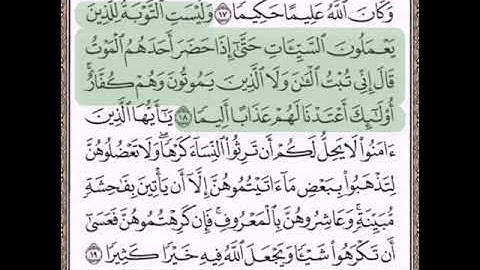 وَكَانَ ٱللَّهُ عَلِيمًا حَكِيمًا ١٧ وَلَيْسَتِ ٱلتَّوْبَةُ لِلَّذِينَ
يَعْمَلُونَ ٱلسَّيِّـَٔاتِ حَتَّىٰٓ إِذَا حَضَرَ أَحَدَهُمُ ٱلْمَوْتُ
قَالَ إِنِّى تُبْتُ ٱلْـَٰٔنَ وَلَا ٱلَّذِينَ يَمُوتُونَ وَهُمْ كُفَّارٌ ۚ
أُو۟لَـٰٓئِكَ أَعْتَدْنَا لَهُمْ عَذَابًا أَلِيمًا ١٨ يَـٰٓأَيُّهَا ٱلَّذِينَ
ءَامَنُوا۟ لَا يَحِلُّ لَكُمْ أَن تَرِثُوا۟ ٱلنِّسَآءَ كَرْهًا ۖ وَلَا تَعْضُلُوهُنَّ
لِتَذْهَبُوا۟ بِبَعْضِ مَآ ءَاتَيْتُمُوهُنَّ إِلَّآ أَن يَأْتِينَ بِفَـٰحِشَةٍ
مُّبَيِّنَةٍ ۚ وَعَاشِرُوهُنَّ بِٱلْمَعْرُوفِ ۚ فَإِن كَرِهْتُمُوهُنَّ فَعَسَىٰٓ
أَن تَكْرَهُوا۟ شَيْـًٔا وَيَجْعَلَ ٱللَّهُ فِيهِ خَيْرًا كَثِيرًا ١٩